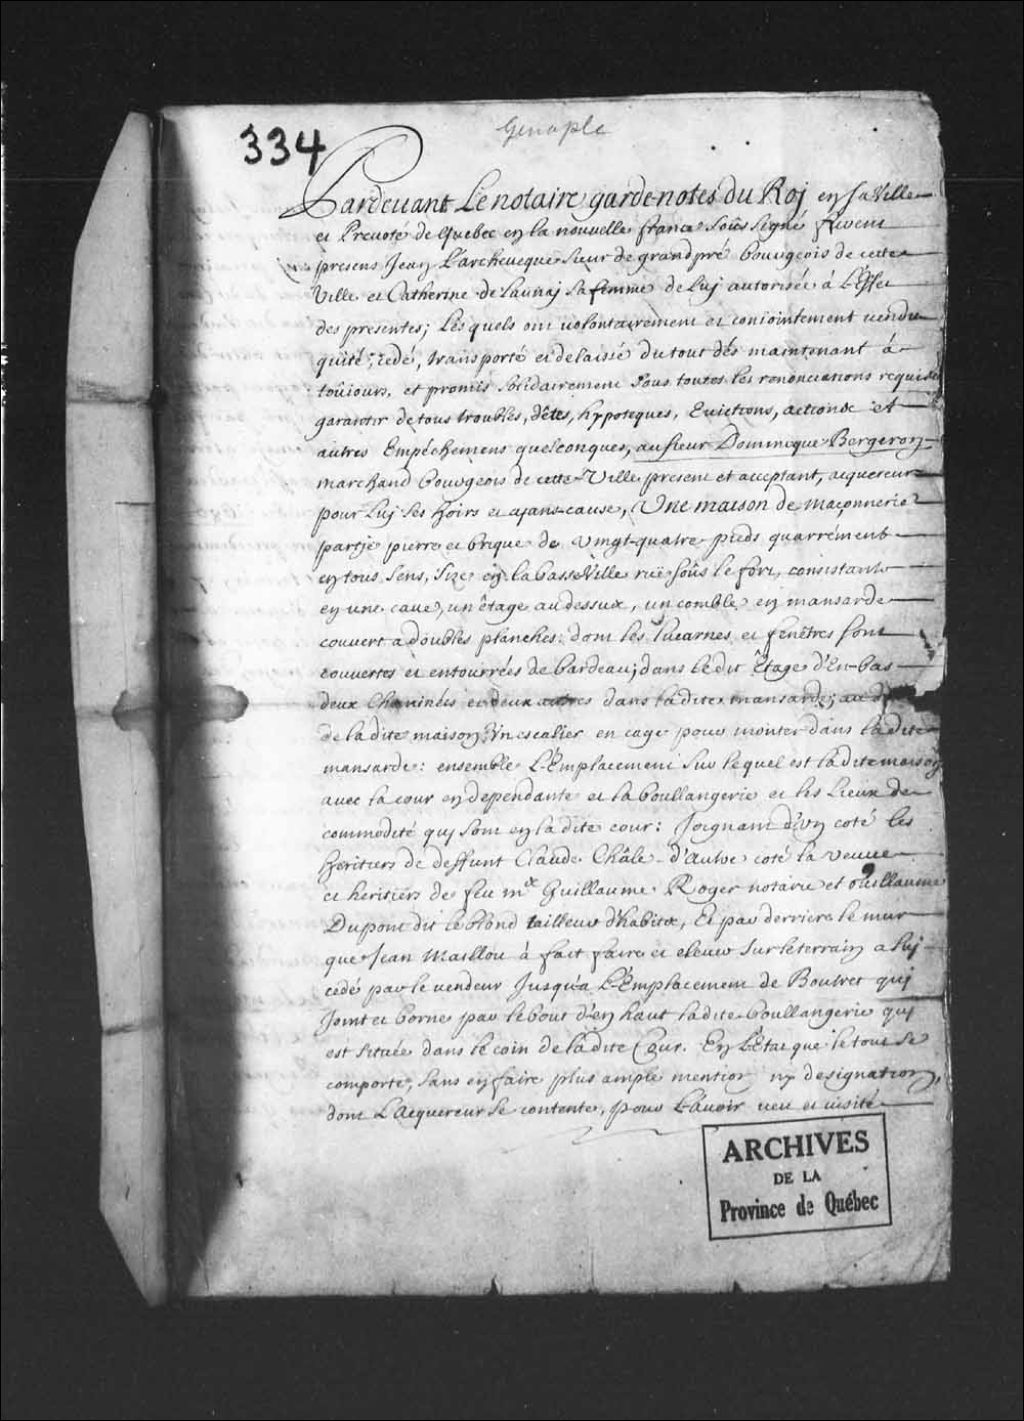 334
Genaple
Pardevant Le notaire gardenotes du Roj en sa Ville
et Prevoté de Quebec en la nouvelle france soûs signé furent
presens Jean L'archeveque sieur de grandpré bourgeois de cette
Ville et Catherine de Launaj sa femme de luj autorisée à L'effet
des presentes; Lesquels ont volontairement et conjointement vendu
quité, cedé, transporté et delaissé du tout dés maintenant à
toûjours, et promis solidairement sous toutes les renonciations requises
garantir de tous troubles, dêtes, hypoteques, Evictions, actions et
autres Empéchemens quelconques, au sieur Dominique Bergeron
marchand bourgeois de cette Ville present et acceptant, acquereur
pour Luj ses hoirs et ajans-cause, Une maison de maçonnerie
partje pierre et brique de vingt-quatre pieds quarrément
en tous sens, size en la basse Ville rüe soûs le fort, consistante
en une cave, un étage au dessus, un comble en mansarde
couvert a doubles planches: dont les lucarnes et fenêtres sont
couvertes et entourrées de bardeau; dans le dit Etage d'En-bas
deux Cheminées et deux autres dans la dite mansarde;
de la dite maison Un escalier en cage pour monter dans la dite
mansarde: ensemble L'Emplacement sur lequel est la dite maison
avec la cour en dependante et la boullangerie et les Lieux de
commodité quj sont en la dite cour: Joignant d'un coté les
heritiers de deffunt Claude Châle d'autre coté la veuve
et heritiers de feu me Guillaume Roger notaire et Guillaume
Dupont dit le blond tailleur d'habitz, Et par derriere le mur
que Jean Maillou à fait faire et elever sur le terrain a luj
cedé par le vendeur Jusqu'à L'Emplacement de Boutret quj
Joint et borne par le bout d'en haut ladite boullangerie quj
est située dans le coin de la dite Cour. En L'Etat que le tout se
comporte, sans en faire plus ample mention ny designation,
dont L'acquereur se contente, pour L'avoir veu et visité
ARCHIVES
DE LA
Province de Québec